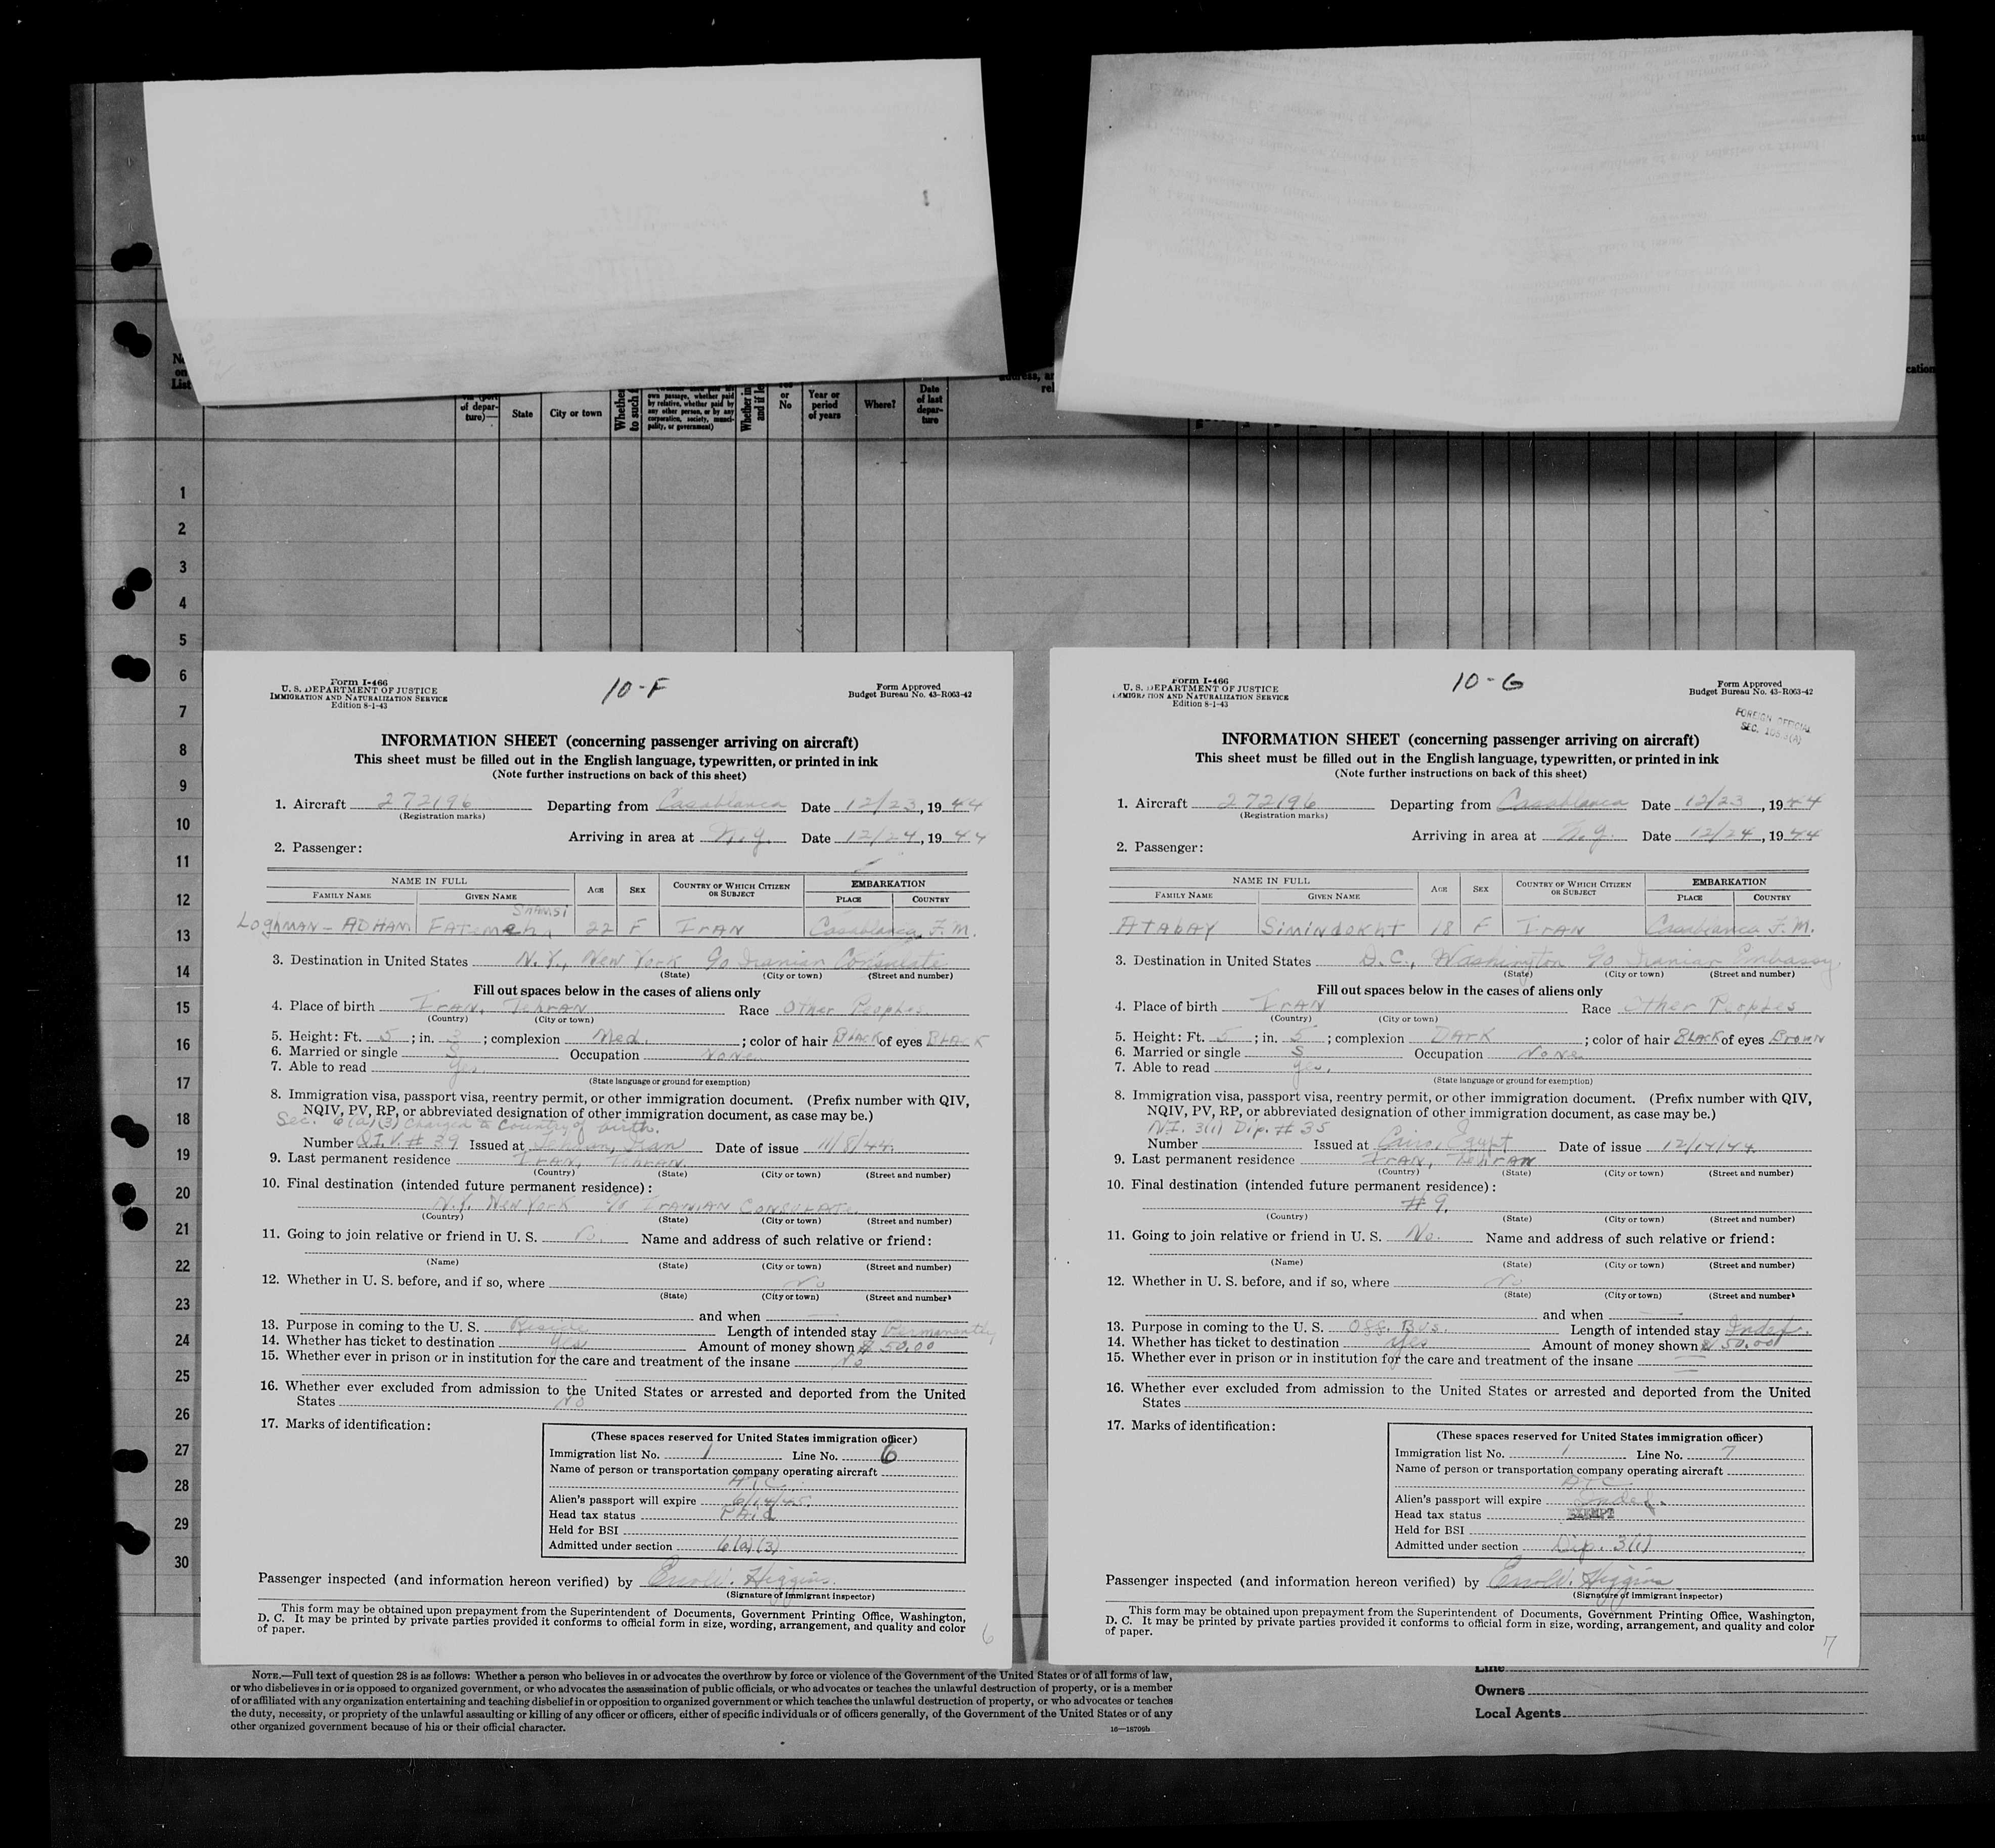 No.
on
List
of depar-
ture)—
State
City or town
Whether
to such
own passage, whether paid
by relative, whether paid by
any other person, or by any
corporation, society, munici-
pality, or government)
Whether in
and if
or
No
Year or
period
of years
Where?
Date
of last
depar-
ture
1
2
3
4
5
6
7
8
9
10
11
12
13
14
15
16
17
18
19
20
21
22
23
24
25
26
27
28
29
30
Form I-466
U. S. DEPARTMENT OF JUSTICE
IMMIGRATION AND NATURALIZATION SERVICE
Edition 8-1-43
10-F
Form Approved
Budget Bureau No. 43-R063-42
INFORMATION SHEET (concerning passenger arriving on aircraft)
This sheet must be filled out in the English language, typewritten, or printed in ink
(Note further instructions on back of this sheet)
1. Aircraft 272196 Departing from Casablanca Date 12/23, 1944
(Registration marks)
Arriving in area at N.Y. Date 12/24, 1944
2. Passenger:
NAME IN FULL AGE SEX COUNTRY OF WHICH CITIZEN OR SUBJECT EMBARKATION
FAMILY NAME GIVEN NAME PLACE COUNTRY
Shamsi
LOGHMAN-ADHAM FATEMEH 22 F IRAN Casablanca F.M.
3. Destination in United States N.Y., New York c/o Iranian Consulate
(State) (City or town) (Street and number)
Fill out spaces below in the cases of aliens only
4. Place of birth IRAN, TehRAN Race Other Peoples
(Country) (City or town)
5. Height: Ft. 5; in. 3; complexion Med.; color of hair BLACK of eyes BLACK
6. Married or single S Occupation None
7. Able to read Yes.
(State language or ground for exemption)
8. Immigration visa, passport visa, reentry permit, or other immigration document. (Prefix number with QIV,
NQIV, PV, RP, or abbreviated designation of other immigration document, as case may be.)
Sec. 6(a)(3) Charged to Country of birth.
Number Q.I.V. # 39 Issued at Tehran, Iran Date of issue 11/8/44.
9. Last permanent residence IRAN, TehRAN
(Country) (State) (City or town) (Street and number)
10. Final destination (intended future permanent residence):
N.Y. New York c/o IRANIAN CONSULATE
(Country) (State) (City or town) (Street and number)
11. Going to join relative or friend in U. S. No. Name and address of such relative or friend:
(Name) (State) (City or town) (Street and number)
12. Whether in U. S. before, and if so, where No
(State) (City or town) (Street and number)
and when
13. Purpose in coming to the U. S. Reside Length of intended stay Permanently
14. Whether has ticket to destination Yes Amount of money shown $ 50.00
15. Whether ever in prison or in institution for the care and treatment of the insane No
16. Whether ever excluded from admission to the United States or arrested and deported from the United
States No
17. Marks of identification:
(These spaces reserved for United States immigration officer)
Immigration list No. 1 Line No. 6
Name of person or transportation company operating aircraft
ATC
Alien's passport will expire 6/14/45.
Head tax status Paid
Held for BSI
Admitted under section 6(a)(3)
Passenger inspected (and information hereon verified) by Higgins.
(Signature of immigrant inspector)
This form may be obtained upon prepayment from the Superintendent of Documents, Government Printing Office, Washington,
D. C. It may be printed by private parties provided it conforms to official form in size, wording, arrangement, and quality and color
of paper.
6
Form I-466
U. S. DEPARTMENT OF JUSTICE
IMMIGRATION AND NATURALIZATION SERVICE
Edition 8-1-43
10-G
Form Approved
Budget Bureau No. 43-R063-42
FOREIGN OFFICIAL
SEC.
INFORMATION SHEET (concerning passenger arriving on aircraft)
This sheet must be filled out in the English language, typewritten, or printed in ink
(Note further instructions on back of this sheet)
1. Aircraft 272196 Departing from Casablanca Date 12/23, 1944
(Registration marks)
Arriving in area at N.Y. Date 12/24, 1944
2. Passenger:
NAME IN FULL AGE SEX COUNTRY OF WHICH CITIZEN OR SUBJECT EMBARKATION
FAMILY NAME GIVEN NAME PLACE COUNTRY
ATABAY SIMINDOKHT 18 F IRAN Casablanca F.M.
3. Destination in United States D.C., Washington c/o Iranian Embassy.
(State) (City or town) (Street and number)
Fill out spaces below in the cases of aliens only
4. Place of birth IRAN Race Other Peoples
(Country) (City or town)
5. Height: Ft. 5; in. 5; complexion DARK; color of hair BLACK of eyes Brown
6. Married or single S Occupation None
7. Able to read Yes.
(State language or ground for exemption)
8. Immigration visa, passport visa, reentry permit, or other immigration document. (Prefix number with QIV,
NQIV, PV, RP, or abbreviated designation of other immigration document, as case may be.)
N.I. 3(1) Dip. # 35
Number Issued at Cairo, Egypt Date of issue 12/14/44.
9. Last permanent residence IRAN, TehRAN
(Country) (State) (City or town) (Street and number)
10. Final destination (intended future permanent residence):
# 9.
(Country) (State) (City or town) (Street and number)
11. Going to join relative or friend in U. S. No. Name and address of such relative or friend:
(Name) (State) (City or town) (Street and number)
12. Whether in U. S. before, and if so, where No
(State) (City or town) (Street and number)
and when
13. Purpose in coming to the U. S. Off. Bus. Length of intended stay Indef.
14. Whether has ticket to destination Yes Amount of money shown $ 50.00
15. Whether ever in prison or in institution for the care and treatment of the insane
16. Whether ever excluded from admission to the United States or arrested and deported from the United
States
17. Marks of identification:
(These spaces reserved for United States immigration officer)
Immigration list No. 1 Line No. 7
Name of person or transportation company operating aircraft
ATC
Alien's passport will expire Indef.
Head tax status EXEMPT
Held for BSI
Admitted under section Dip. 3(1)
Passenger inspected (and information hereon verified) by Higgins
(Signature of immigrant inspector)
This form may be obtained upon prepayment from the Superintendent of Documents, Government Printing Office, Washington,
D. C. It may be printed by private parties provided it conforms to official form in size, wording, arrangement, and quality and color
of paper.
7
NOTE.—Full text of question 28 is as follows: Whether a person who believes in or advocates the overthrow by force or violence of the Government of the United States or of all forms of law,
or who disbelieves in or is opposed to organized government, or who advocates the assassination of public officials, or who advocates or teaches the unlawful destruction of property, or is a member
of or affiliated with any organization entertaining and teaching disbelief in or opposition to organized government or which teaches the unlawful destruction of property, or who advocates or teaches
the duty, necessity, or propriety of the unlawful assaulting or killing of any officer or officers, either of specific individuals or of officers generally, of the Government of the United States or of any
other organized government because of his or their official character.
16—18709b
Line
Owners
Local Agents